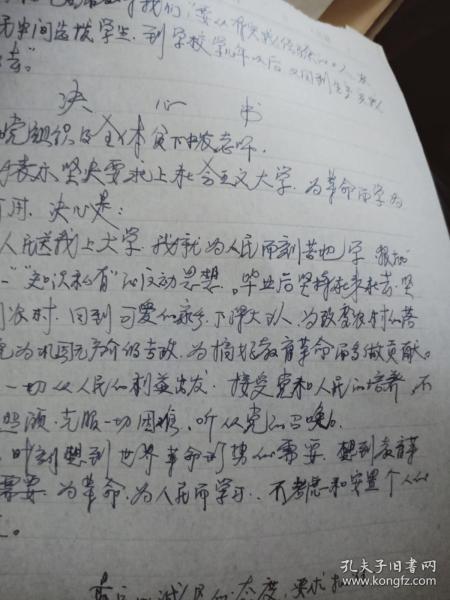 我们，要从有实践经验的工人农
民中间选拔学生，到学校学几年以后，又回到生产实践
去。”
决 心 书
党组织及全体贫下中农老师：
表示坚决要求上社会主义大学，为革命而学为
用，决心是：
人民送我上大学，我就为人民而刻苦地学，狠
“知识私有”的反动思想。毕业后坚持社来社去，坚
农村，回到可爱的家乡，下潭大队，为改变农村的
为巩固无产阶级专政，为搞好教育革命而多做贡献。
一切从人民的利益出发，接受党和人民的培养，不
照顾，克服一切困难，听从党的召唤。
时刻想到世界革命形势的需要，想到教育革
需要，为革命，为人民而学习，不考虑和安置个人的
态度，要求
孔夫子旧书网
www.kongfz.com